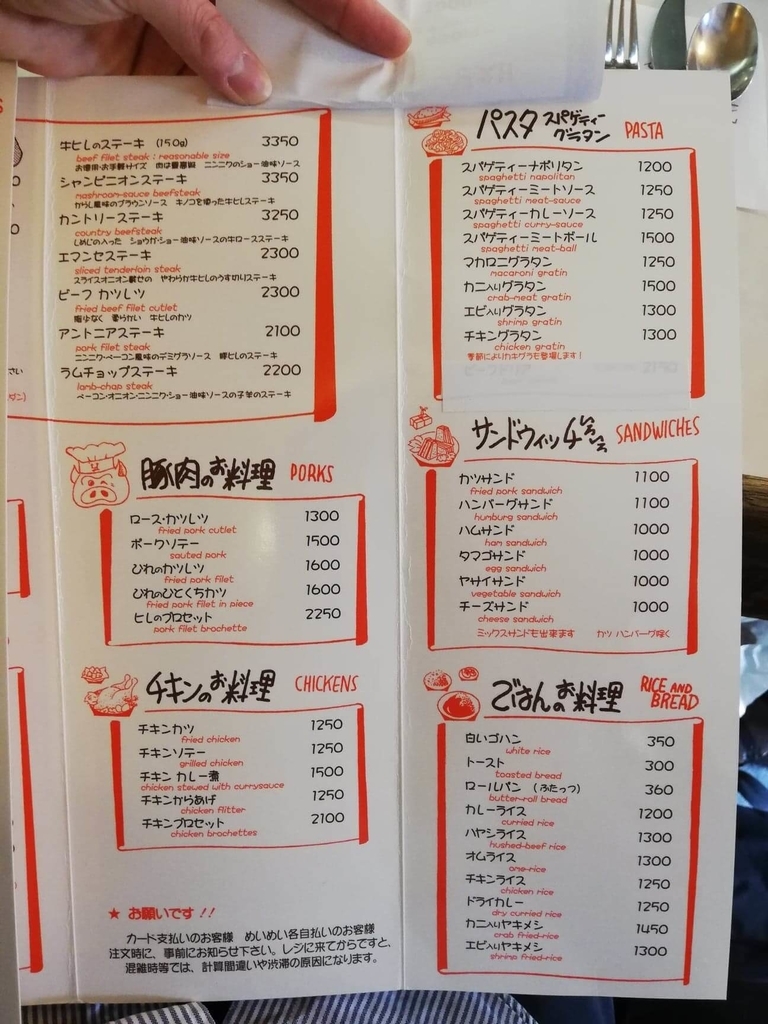 牛ヒレのステーキ (150g) 3350
beef filet steak : reasonable size
お値頃・お手軽サイズ 肉は最高級 ニンニクのショー油味ソース
シャンピニオンステーキ 3350
mashroom-sauce beefsteak
からし風味のブラウンソース キノコを使った牛ヒレステーキ
カントリーステーキ 3250
country beefsteak
しめじの入った ショウガ・ショー油味ソースの牛ロースステーキ
エマンセステーキ 2300
sliced tenderloin steak
スライスオニオン載せの やわらか牛ヒレのうす切りステーキ
ビーフ カツレツ 2300
fried beef filet cutlet
脂少なく 柔らかい 牛ヒレのカツ
アントニアステーキ 2100
pork filet steak
ニンニク・ベーコン風味のデミグラソース 豚ヒレのステーキ
ラムチョップステーキ 2200
lamb-chap steak
ベーコン・オニオン・ニンニク・ショー油味ソースの子羊のステーキ
豚肉のお料理 PORKS
ロース・カツレツ 1300
fried pork cutlet
ポークソテー 1500
sauted pork
ひれのカツレツ 1600
fried pork filet
ひれのひとくちカツ 1600
fried pork filet in piece
ヒレのブロセット 2250
pork filet brochette
チキンのお料理 CHICKENS
チキンカツ 1250
fried chicken
チキンソテー 1250
grilled chicken
チキン カレー煮 1500
chicken stewed with currysauce
チキンからあげ 1250
chicken flitter
チキンブロセット 2100
chicken brochettes
★ お願いです!!
カード支払いのお客様 めいめい各自払いのお客様
注文時に、事前にお知らせ下さい。レジに来てからですと、
混雑時等では、計算間違いや渋滞の原因になります。
パスタ スパゲティー グラタン PASTA
スパゲティーナポリタン 1200
spaghetti napolitan
スパゲティーミートソース 1250
spaghetti meat-sauce
スパゲティーカレーソース 1250
spaghetti curry-sauce
スパゲティーミートボール 1500
spaghetti meat-ball
マカロニグラタン 1250
macaroni gratin
カニ入りグラタン 1500
crab-meat gratin
エビ入りグラタン 1300
shrimp gratin
チキングラタン 1300
chicken gratin
季節によりカキグラも登場します!
サンドウィッチ SANDWICHES
カツサンド 1100
fried pork sandwich
ハンバーグサンド 1100
humburg sandwich
ハムサンド 1000
ham sandwich
タマゴサンド 1000
egg sandwich
ヤサイサンド 1000
vegetable sandwich
チーズサンド 1000
cheese sandwich
ミックスサンドも出来ます カツ ハンバーグ除く
ごはんのお料理 RICE AND BREAD
白いゴハン 350
white rice
トースト 300
toasted bread
ロールパン (ふたっつ) 360
butter-roll bread
カレーライス 1200
curried rice
ハヤシライス 1300
hushed-beef rice
オムライス 1300
ome-rice
チキンライス 1250
chicken rice
ドライカレー 1250
dry curried rice
カニ入りヤキメシ 1450
crab fried-rice
エビ入りヤキメシ 1300
shrimp fried-rice